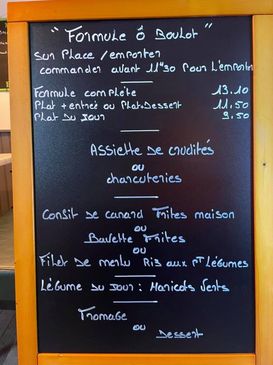 " Formule ô Boulot "
Sur Place / emporter
commander avant 11H30 Pour L'emporter
Formule complète 13.10
Plat + entrée ou Plat + Dessert 11,50
Plat Du Jour 9,50
Assiette de crudités
ou
charcuteries
Confit de canard Frites maison
ou
Bavette Frites
ou
Filet de merlu Riz aux Pt Légumes
Légume du Jour : Haricots Verts
Fromage
ou
Dessert